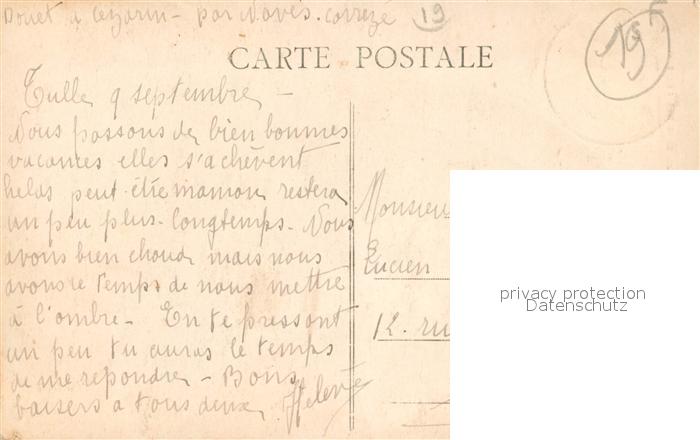 Douet à Cezarin - par Naves. Corrèze 19
19F
CARTE POSTALE
Tulle 9 septembre -
Nous passons de bien bonnes
vacances elles s'achèvent
helas peut-être maman restera
un peu plus longtemps - Nous
avons bien chaud mais nous
avons le temps de nous mettre
à l'ombre - En te pressant
un peu tu auras le temps
de me repondre - Bons
baisers a tous deux Helene
Monsieur
Lucien
12. ru
privacy protection
Datenschutz